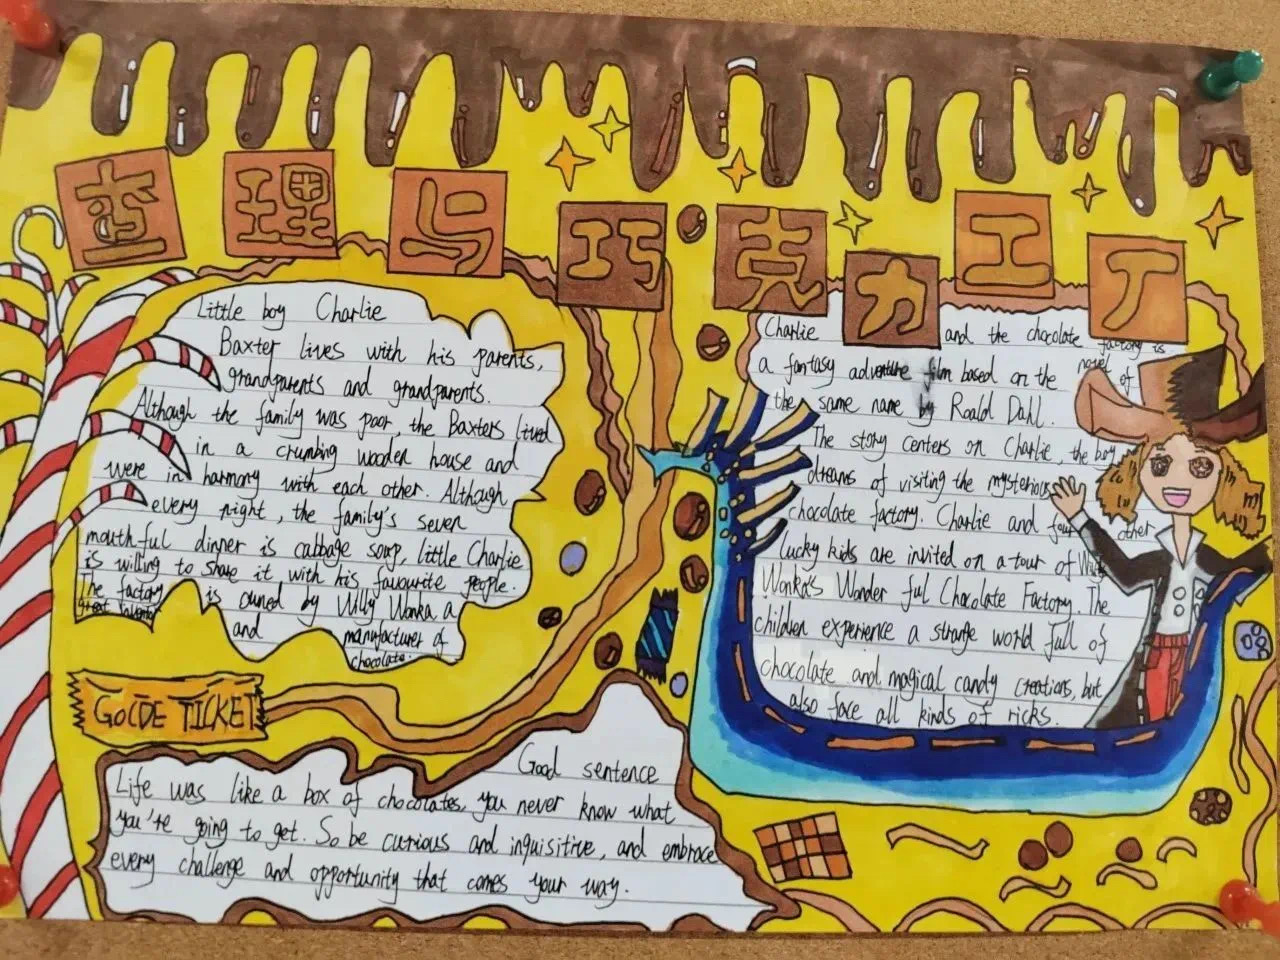 查理与巧克力工厂
Little boy Charlie
Baxter lives with his parents,
grandparents and grandparents.
Although the family was poor, the Baxters lived
in a crumbing wooden house and
were in harmony with each other. Although
every night, the family's seven
mouthful dinner is cabbage soup, little Charlie
is willing to share it with his favourite people.
The factory is owned by Willy Wonka a
great inventor and manufacturer of
chocolate.
GOLDE TICKET
Good sentence
Life was like a box of chocolates, you never know what
you're going to get. So be curious and inquisitive, and embrace
every challenge and opportunity that comes your way.
Charlie and the chocolate factory is
a fantasy adventure film based on the novel of
the same name by Roald Dahl.
The story centers on Charlie, the boy
dreams of visiting the mysterious
chocolate factory. Charlie and four other
lucky kids are invited on a tour of
Wonka's Wonder ful Chocolate Factory. The
children experience a strange world full of
chocolate and magical candy creations, but
also face all kinds of ricks.